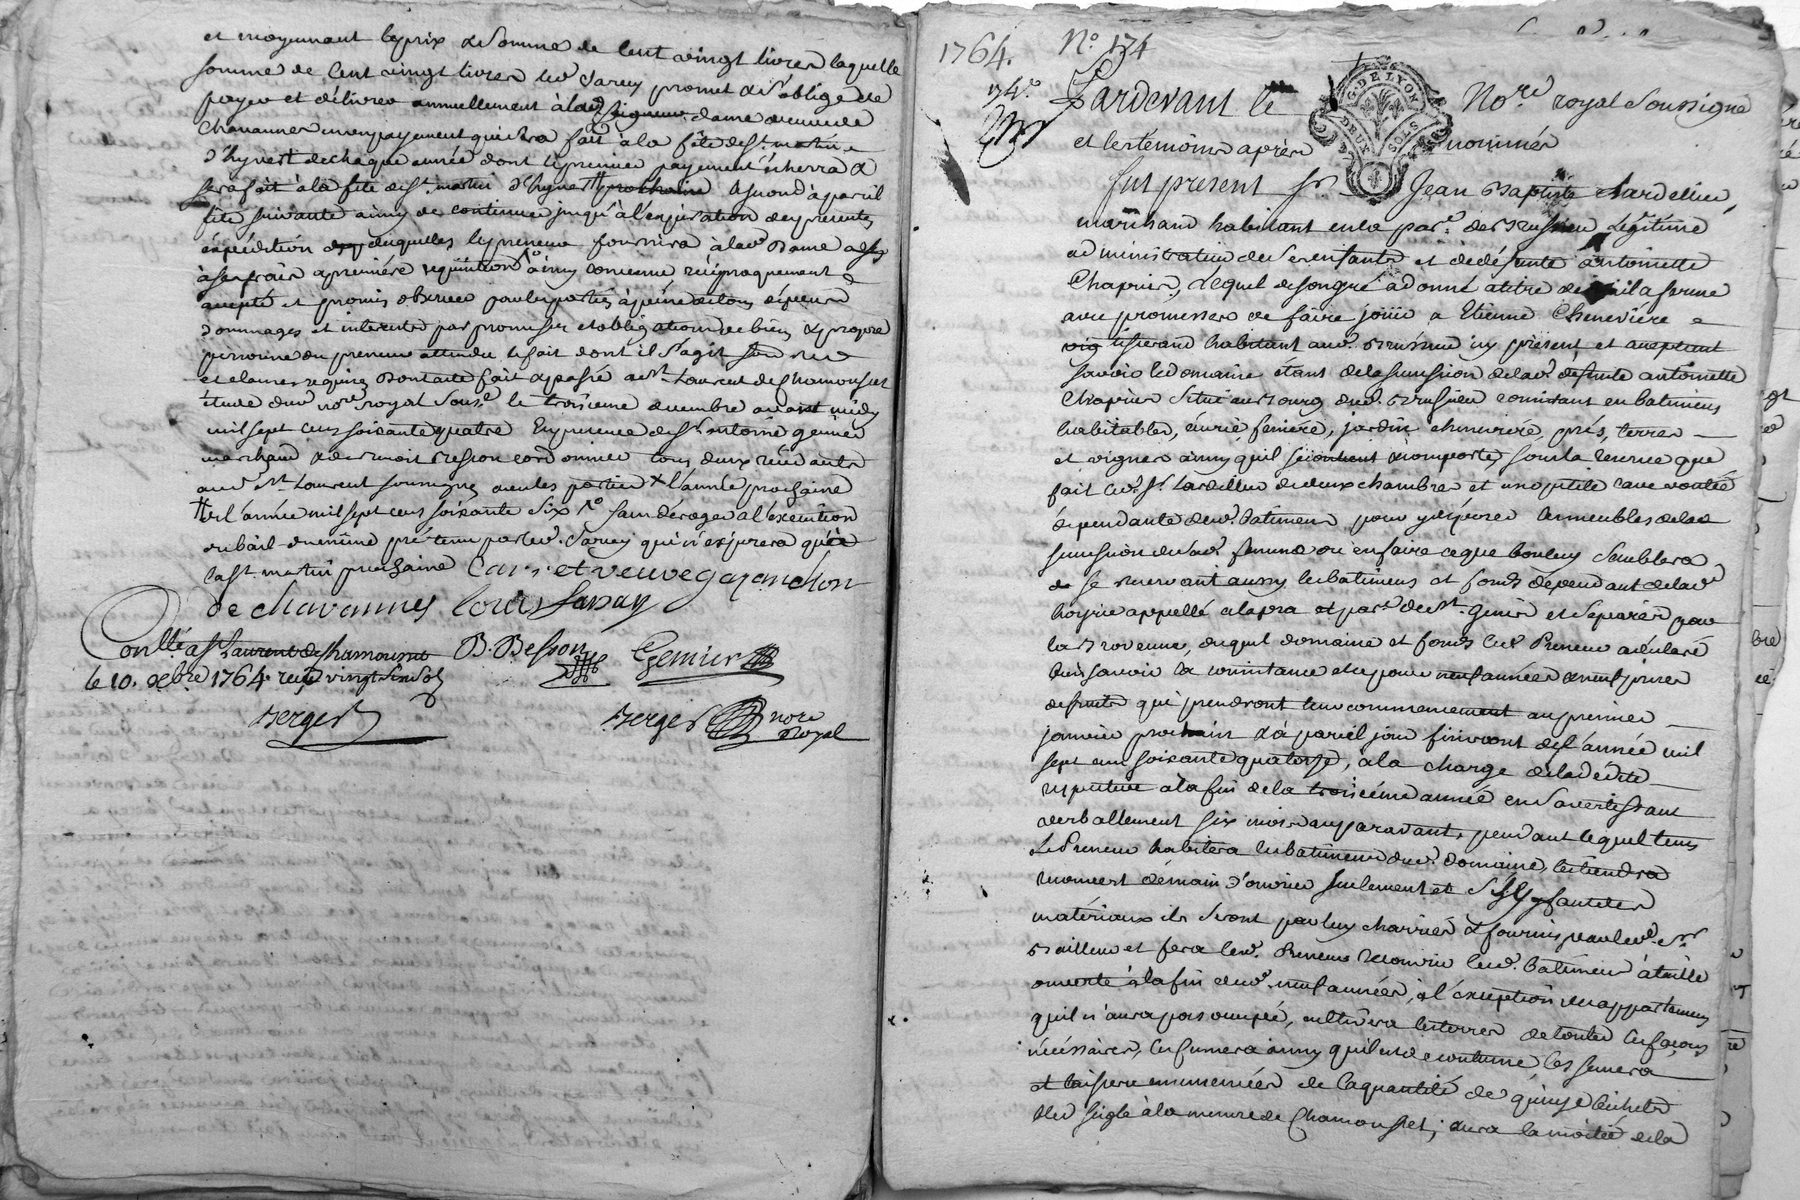 et moyennant le prix & somme de cent vingt livres laquelle
somme de cent vingt livres led. Sarcy promet & s'oblige de
payer et delivrer annuellement à lad. dame veuve de
Chavannes un payement qui sera fait à la fête de St. martin
d'hyvert de chaque année dont le premier payement écherra &
sera fait à la fête de St. martin d'hyvert prochaine le second à pareil
fête suivante ainsy de continuer jusqu'à l'expiration des présentes
expédition desquelles le preneur fournira à lad. Dame
à ses frais a première requisition ainsy convenu réciproquement
accepté et promis observer par les parties à peine de tous dépens
dommages et interests par promesses et obligations de biens & propre
personne du preneur attendu le fait dont il s'agit
et clauses requises Dont acte fait & passé a St. Laurent de Chamousset
étude dud. nore royal sousé. le troisieme decembre avant midy
mil sept cens soixante quatre En presence de Sr. antoine gemier
marchand & de benoit Besson cordonnier tous deux résidants
aud. St. Laurent soussignez avec les parties # l'année prochaine
# de l'année mil sept cens soixante six sans déroger a l'execution
du bail du même pré tenu par led. Sarcy qui n'expirera qu'à
la St. martin prochaine veuve gazanchon
de chavannes louis
Conllé a St Laurent de Chamousset B. Besson Gemier
le 10. xbre 1764. reçu vingt six sols
Berger Berger nore
Royal
1764. No. 174
Pardevant le Nore. royal soussigné
et les témoins après nommés
G. DE LYON
DEUX SOLS
fut présent Sr. Jean Baptiste Bardellier,
marchand habitant en la par. de Brussieu Légitime
administrateur de ses enfants et de défunte antoinette
Chaprier, Lequel de son gré a donné a titre de bail a ferme
avec promesses de faire jouir a Etienne Chenevière
tisserand habitant aud. Brussieu icy présent et acceptant
savoir le domaine étant de la succession de lad. defunte antoinette
Chaprier situé au Bourg dud. Brussieu consistant en batimens
habitables, écurie, feniere, jardin, cheneviere, prés, terres
et vignes ainsy qu'il se comporte, sous la reserve que
fait led. Sr. Bardellier de deux chambres et une petite cave voutée
dépendante desd. batimens pour y déposer les meubles de la
succession de sad. femme ou en faire ce que bon luy semblera,
& se reservant aussy les batimens et fonds dépendant de lad.
hoyrie appellé a lapra et par. de St. genis et séparés par
la Brevenne, duquel domaine et fonds led. Preneur a déclaré
bien savoir la consistance et ce pour neuf années & neuf prises
de fruits qui prendront leur commencement au premier
janvier prochain & à pareil jour finiront de l'année mil
sept cens soixante quatorze, a la charge de la dédite
respective à la fin de la troisieme année en s'avertissant
verballement six mois auparavant, pendant lequel tems
Le Preneur habitera les batimens dud. domaine, les tiendra
recouvert de main d'ouvrier seulement et s'il y faut des
matériaux ils seront par luy charriés & fournis par led. Sr.
Bailleur et fera led. Preneur recouvrir lesd. batimens à tuille
ouverte à la fin desd. neuf années, à l'exception des appartemens
qu'il n'aura pas occupés, cultivera les terres de toutes les façons
nécessaires, les fumera ainsy qu'il est de coutume les semera
et laissera ensemencées de la quantité de quinze bichets
bled seigle à la mesure de Chamousset; aura la moitié de la